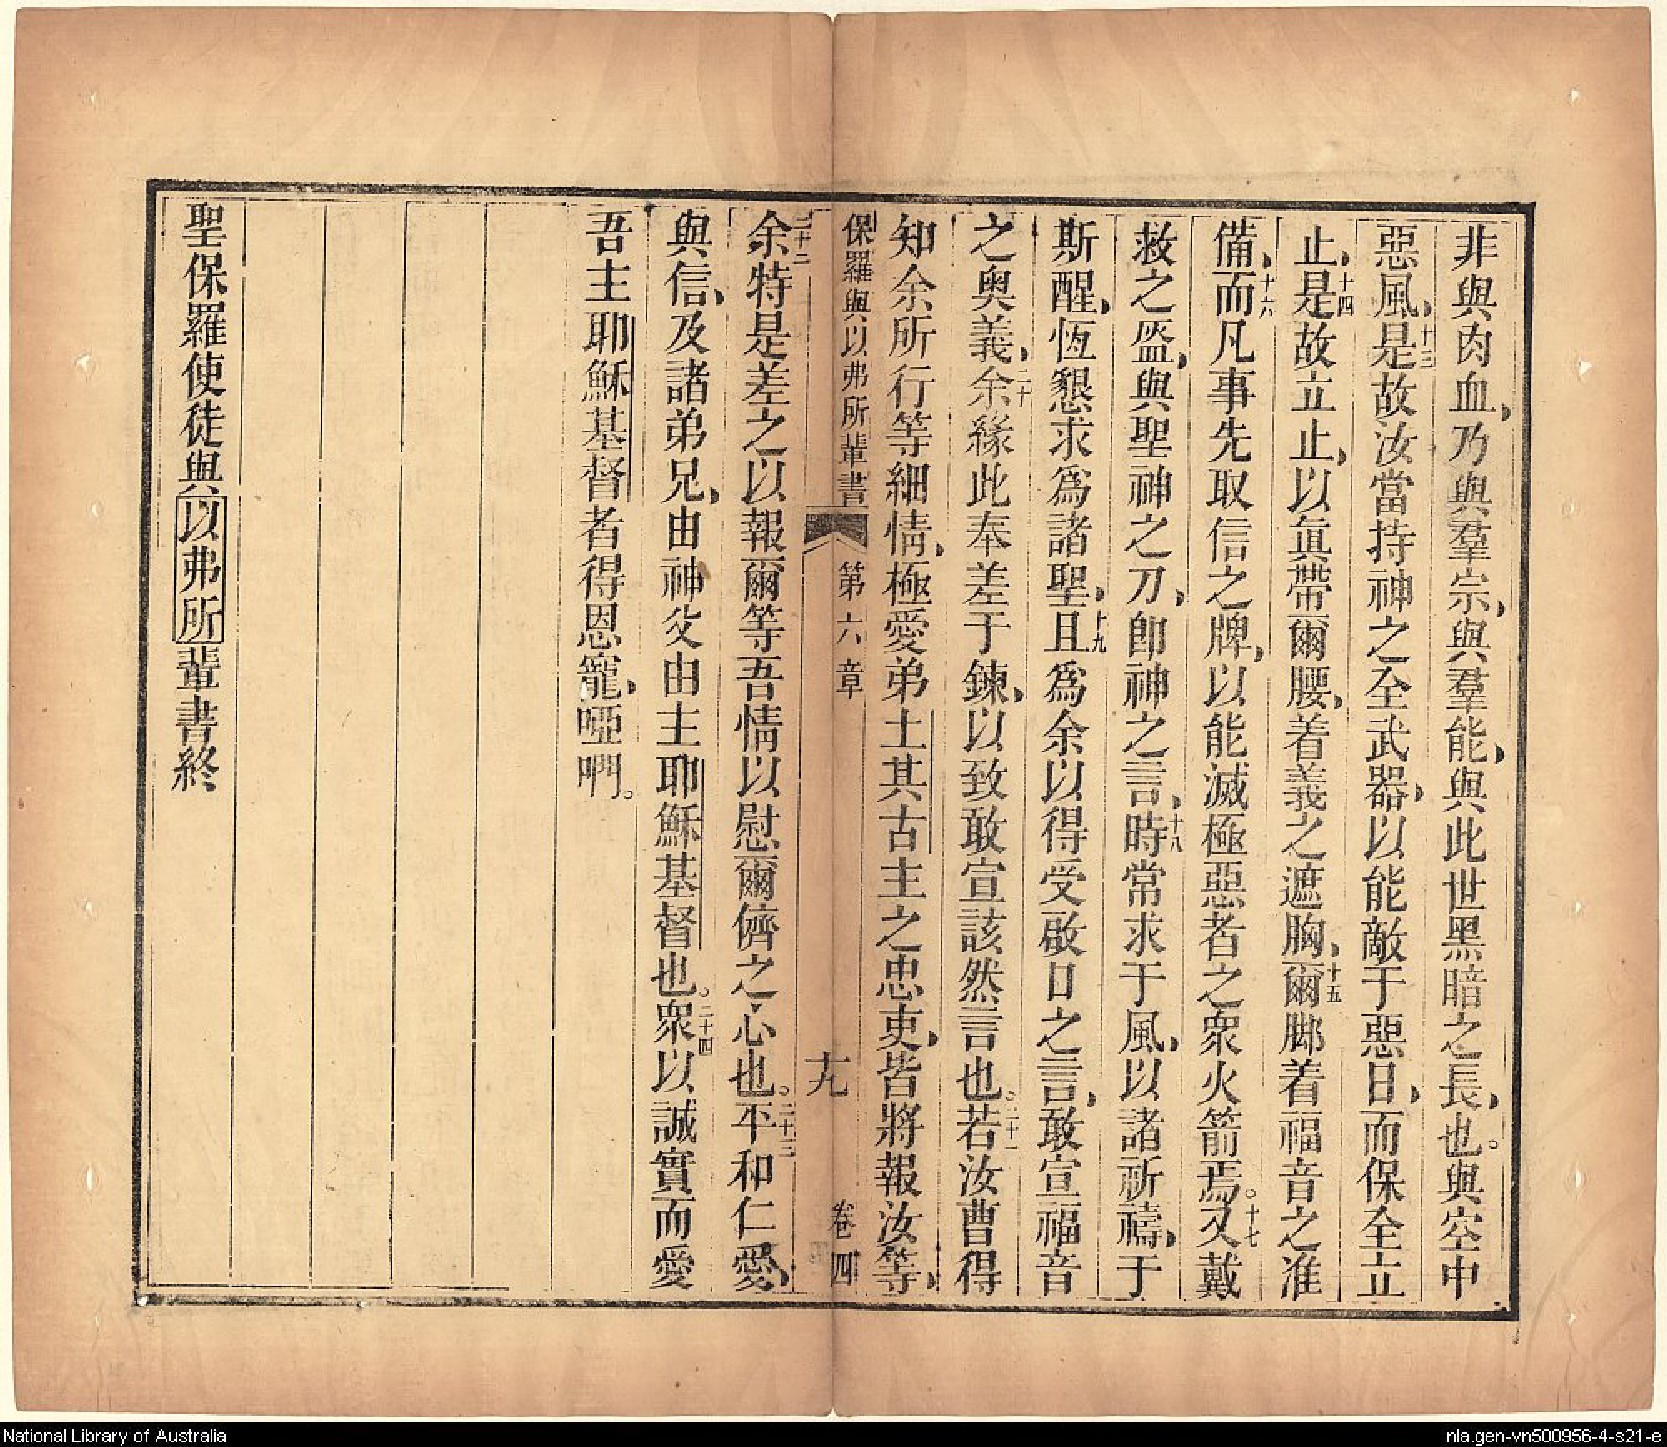 非與肉血，乃與羣宗，與羣能，與此世黑暗之長，也。與空中
惡風，十三是故汝當持神之至武器，以能敵于惡日，而保全立
止，十四是故立止，以眞帶爾腰，着義之遮胸，十五爾脚着福音之准
備，十六而凡事先取信之牌，以能滅極惡者之衆火箭焉。十七又戴
救之盔，與聖神之刀，卽神之言，十八時常求于風，以諸祈禱，于
斯醒，恆懇求爲諸聖，十九且爲余以得受啟口之言，敢宣福音
之奧義，二十余緣此奉差于鍊，以致敢宣該然言也。二十一若汝曹得
知余所行等細情，極愛弟土其古主之忠吏，皆將報汝等，
保羅與以弗所輩書 第六章 十九 卷四
二十二余特是差之以報爾等吾情以慰爾儕之心也。二十三平和仁愛，
與信，及諸弟兄，由神父由主耶穌基督也。二十四衆以誠實而愛
吾主耶穌基督者得恩寵，啞啊。
聖保羅使徒與以弗所輩書終
National Library of Australia
nla.gen-vn500956-4-s21-e